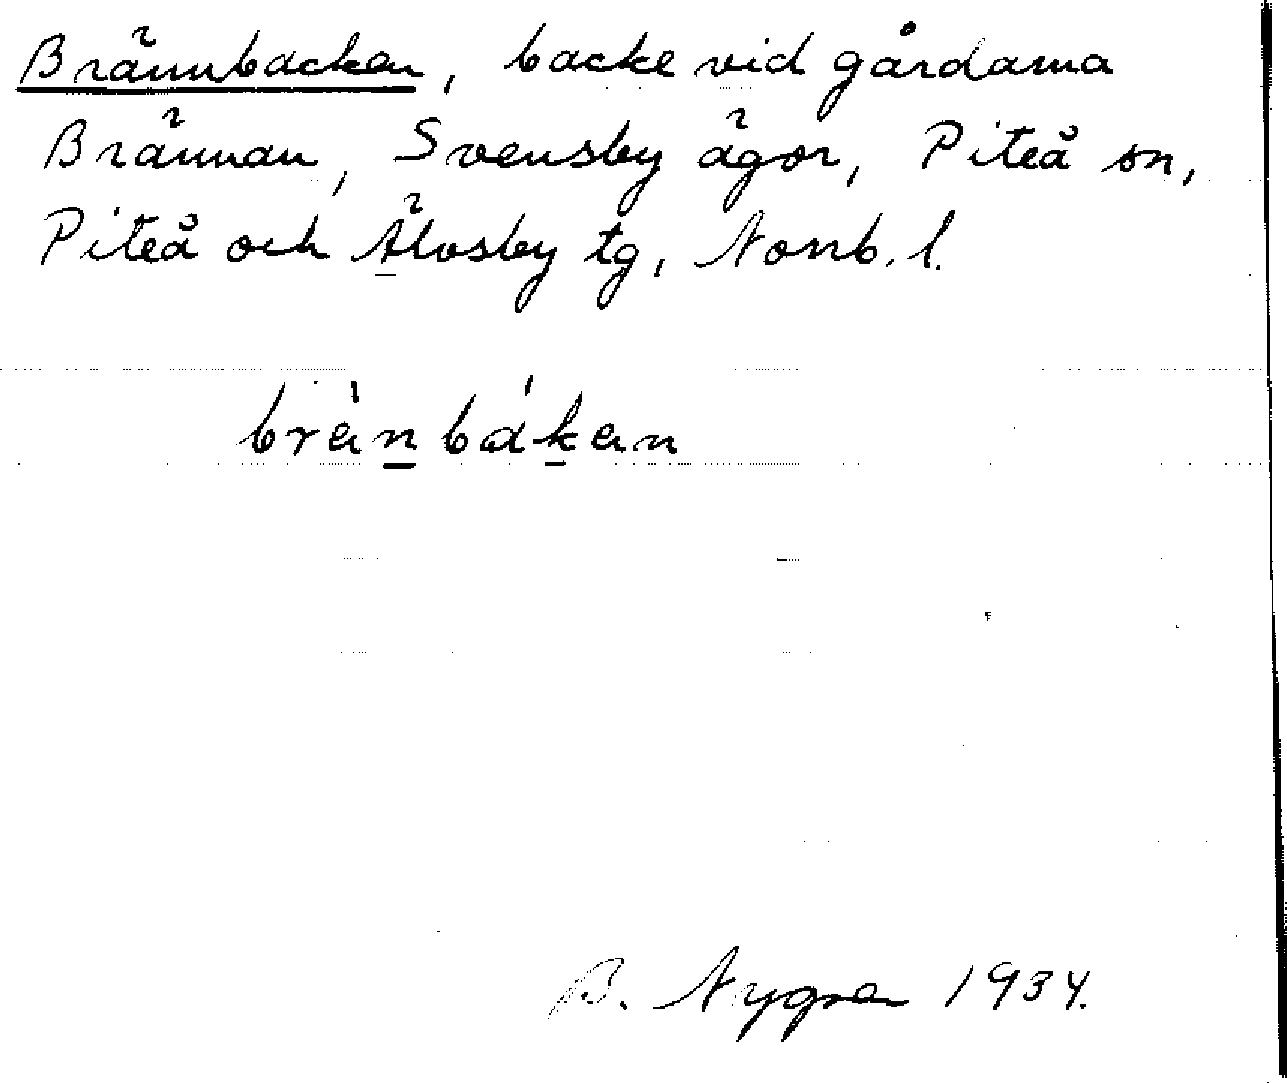 Brännbacken, backe vid gårdarna
Brännan, Svensby ägor, Piteå sn,
Piteå och Älvsby tg, Norrb. l.
brän bákan
B. Nygren 1934.